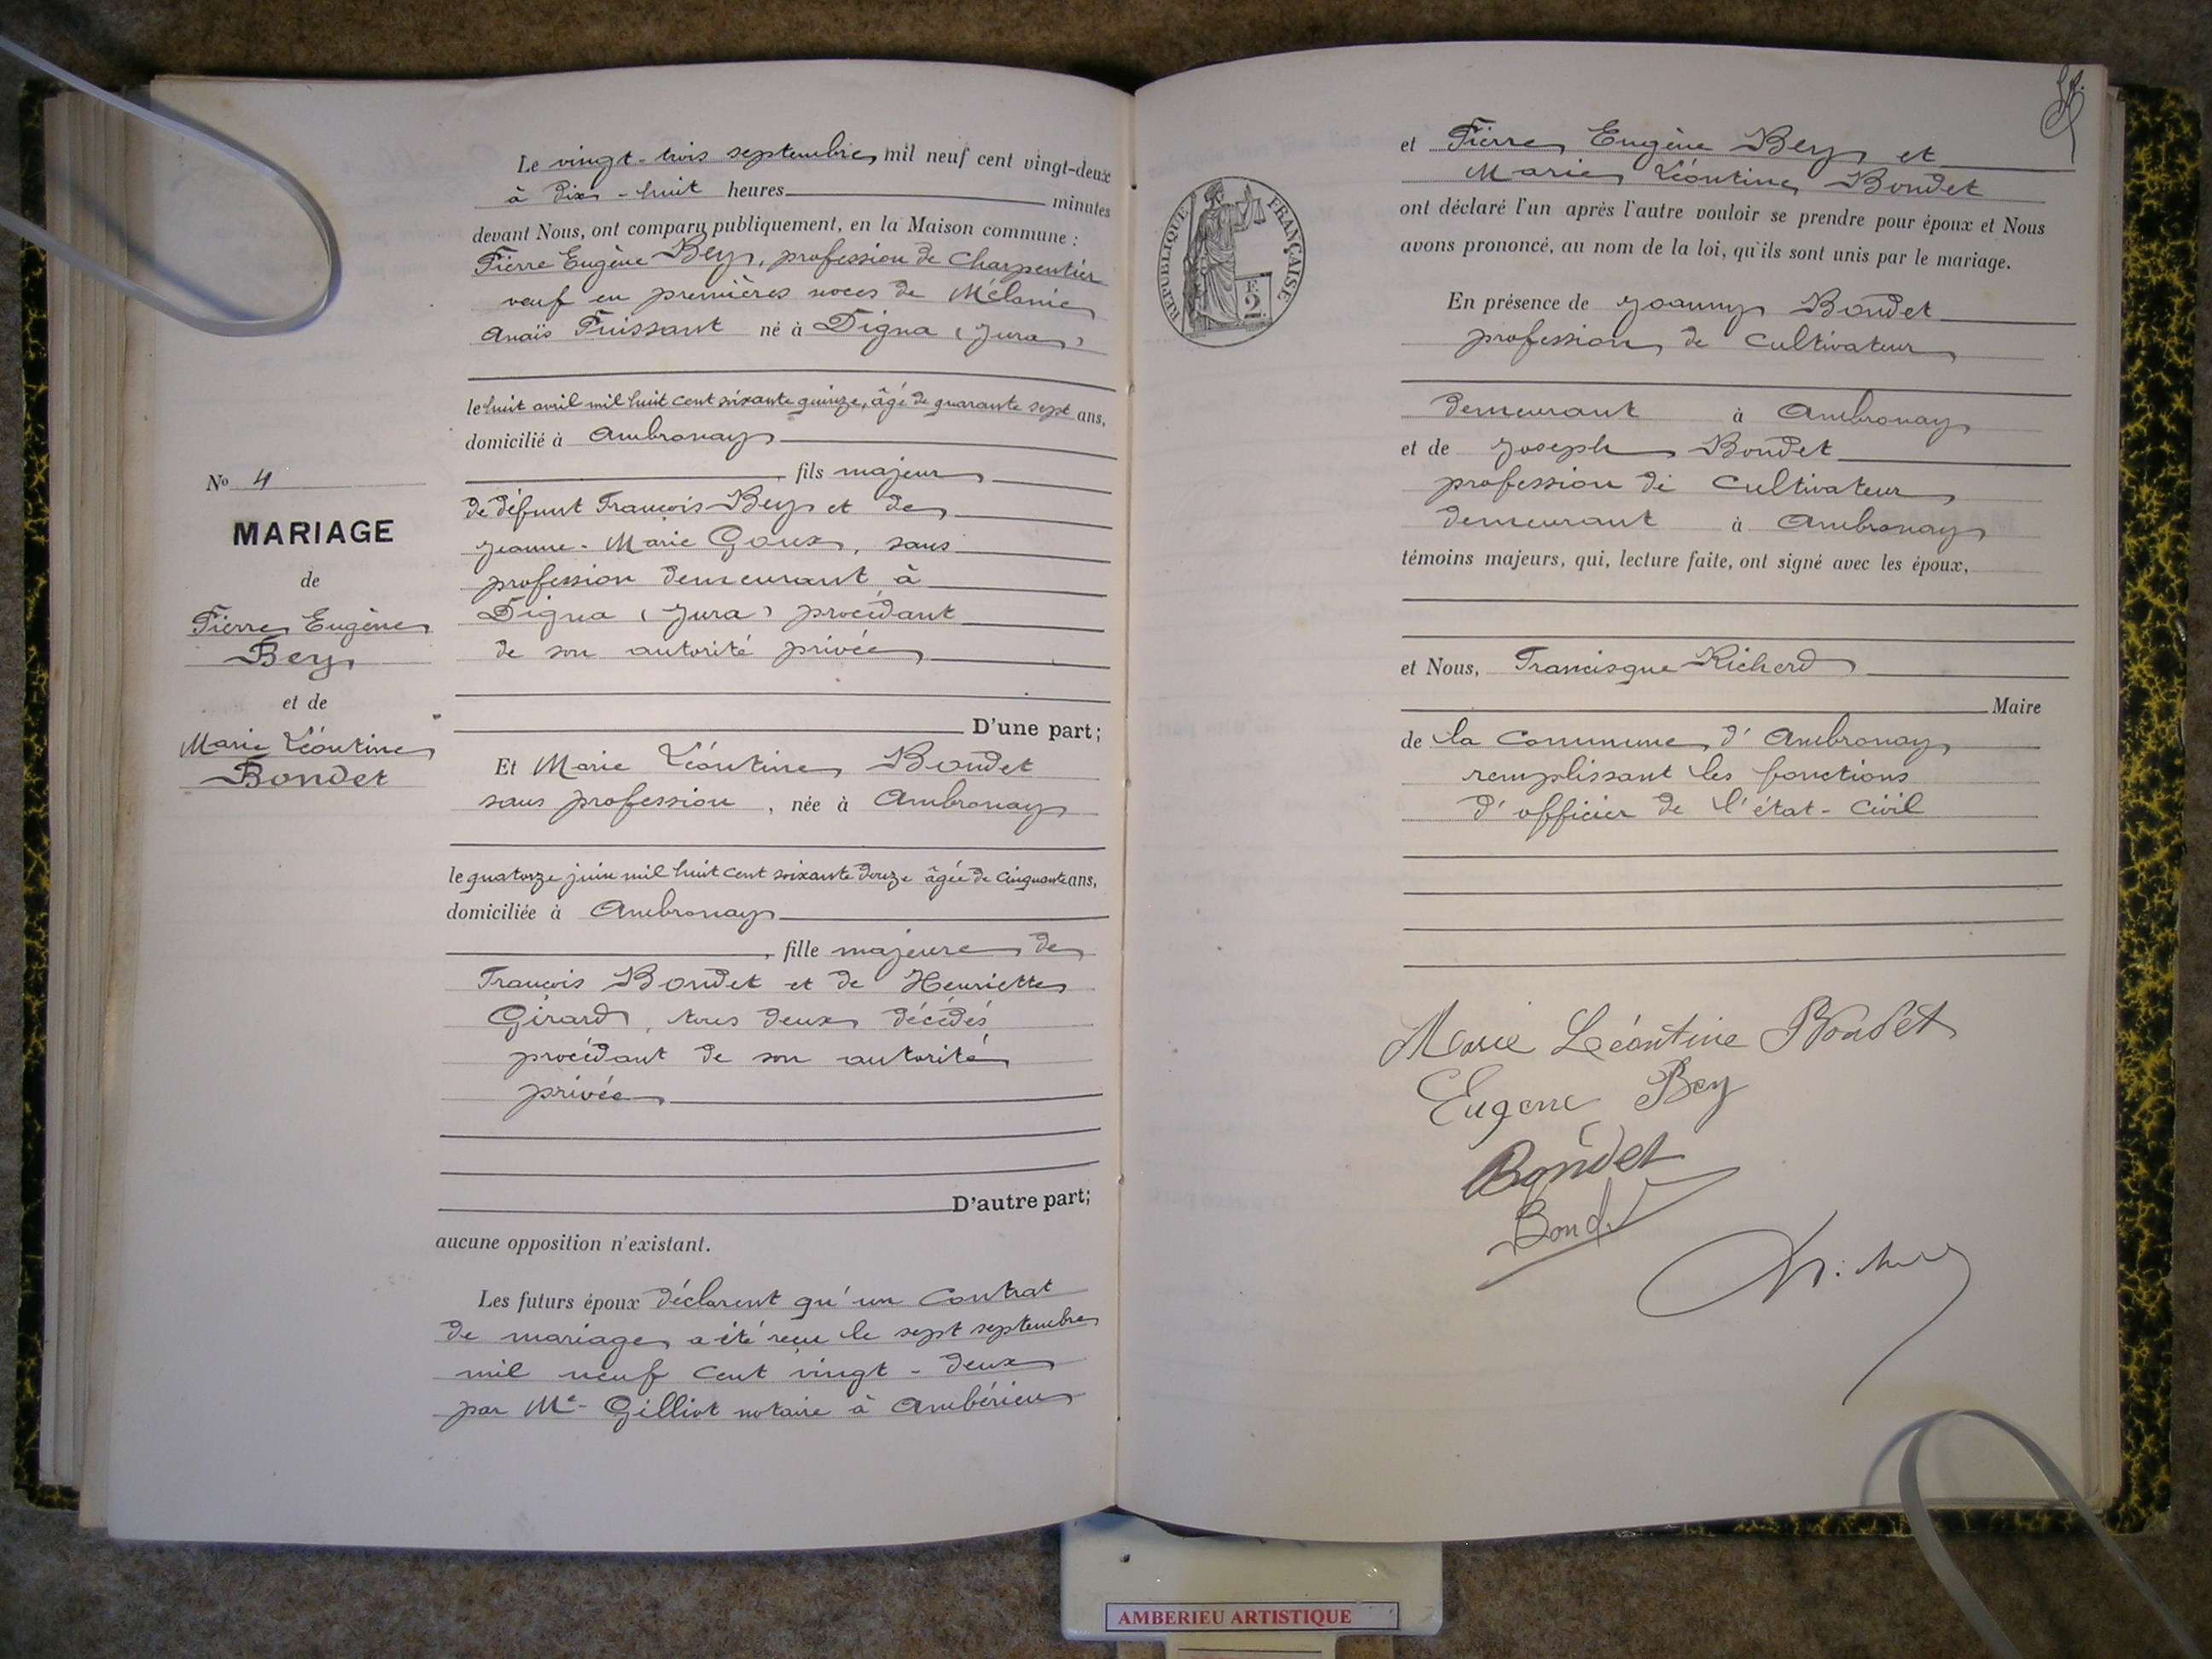 Le vingt-trois septembre, mil neuf cent vingt-deux
à dix-huit heures minutes
devant Nous, ont comparu publiquement, en la Maison commune :
Pierre Eugène Bey, profession de Charpentier
veuf en premières noces de Mélanie
Anaïs Puissant né à Digna (Jura)
le huit avril mil huit cent soixante quinze, âgé de quarante sept ans,
domicilié à Ambronay
, fils majeur
de défunt François Bey et de
Jeanne-Marie Goux, sans
profession demeurant à
Digna (Jura) procédant
de son autorité privée
D'une part;
No 4
MARIAGE
de
Pierre Eugène
Bey
et de
Marie Léontine
Bondet
Et Marie Léontine Bondet
sans profession, née à Ambronay
le quatorze juin mil huit cent soixante douze âgée de cinquante ans,
domiciliée à Ambronay
, fille majeure de
François Bondet et de Henriette
Girard, tous deux décédés
procédant de son autorité
privée
D'autre part;
aucune opposition n'existant.
Les futurs époux déclarent qu'un contrat
de mariage a été reçu le sept septembre
mil neuf cent vingt-deux
par Me Gilliot notaire à Ambérieu
et Pierre Eugène Bey et
Marie Léontine Bondet
ont déclaré l'un après l'autre vouloir se prendre pour époux et Nous
avons prononcé, au nom de la loi, qu'ils sont unis par le mariage.
RÉPUBLIQUE FRANÇAISE
F.
2.
En présence de Joanny Bondet
profession de cultivateur
demeurant à Ambronay
et de Joseph Bondet
profession de cultivateur
demeurant à Ambronay
témoins majeurs, qui, lecture faite, ont signé avec les époux,
et Nous, Francisque Richerd
Maire
de la Commune d'Ambronay
remplissant les fonctions
d'officier de l'état-civil
Marie Léontine Bondet
Eugene Bey
Bondet
Bondet
AMBERIEU ARTISTIQUE